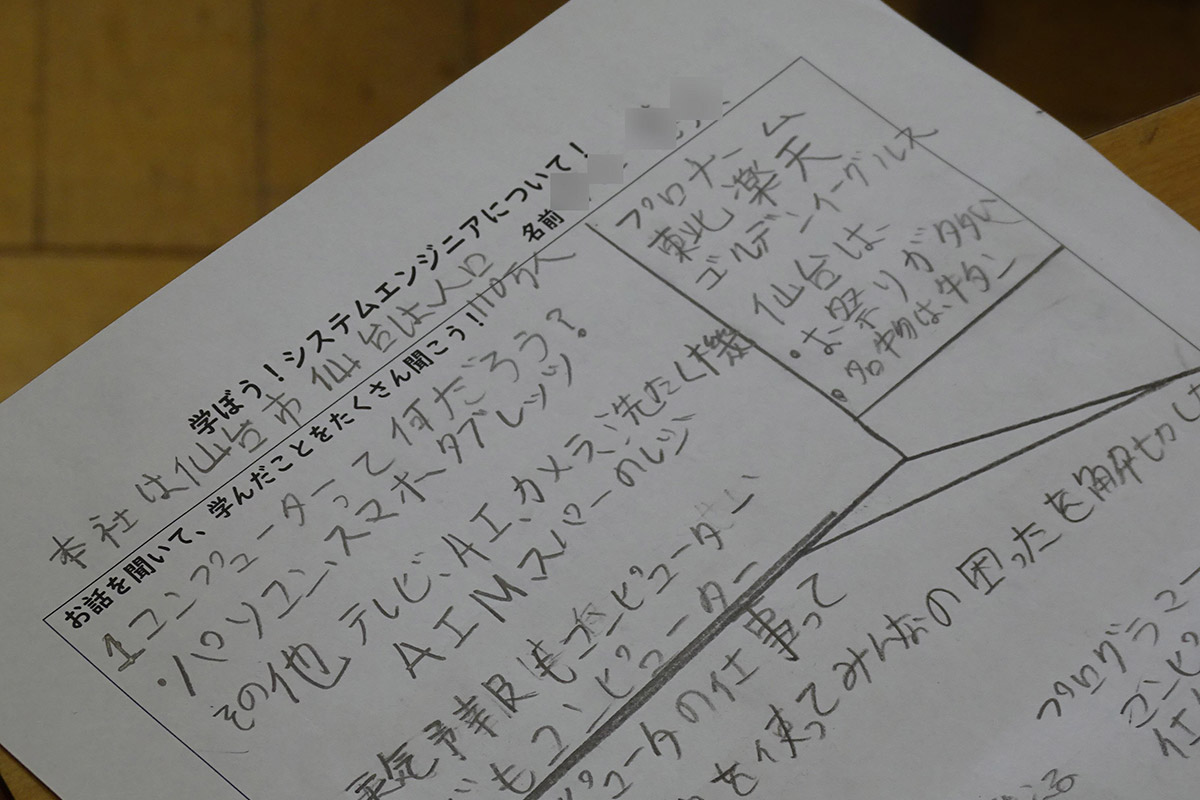 学ぼう！システムエンジニアについて！
名前
本社は仙台市 仙台は人口110万人
お話を聞いて、学んだことをたくさん聞こう！
1コンピューターって何だろう？
・パソコン、スマホ、タブレッツ
その他 テレビ、AI、カメラ、洗たく機
AIMスパーのレジ
天気予報もコンピューター
もコンピューター
プロチーム
東北楽天
ゴールデンイーグルス
仙台は
・お祭りが多い
・名物は、牛タン
ピュータの仕事って
を使ってみんなの困ったを解切し
プログラ
コンピ